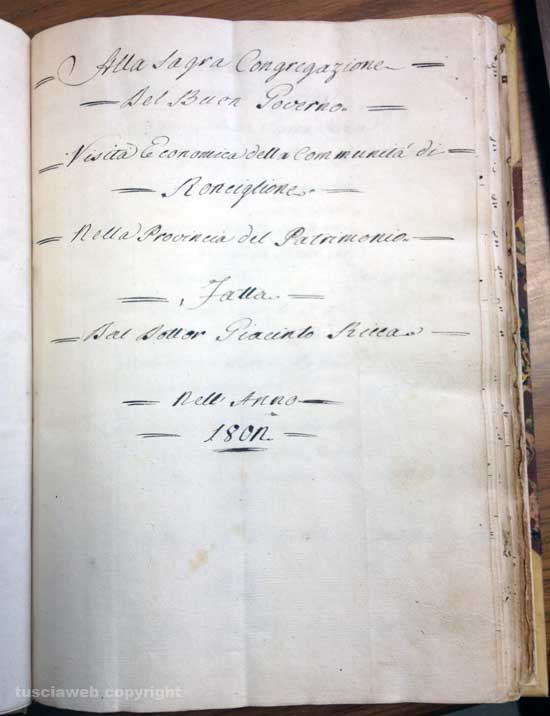 Alla Sagra Congregazione
Del Buon Governo
Visita Economica della Communità di
Ronciglione
Nella Provincia del Patrimonio
Fatta
Dal Dottor Giacinto
Nell Anno
tusciaweb copyright